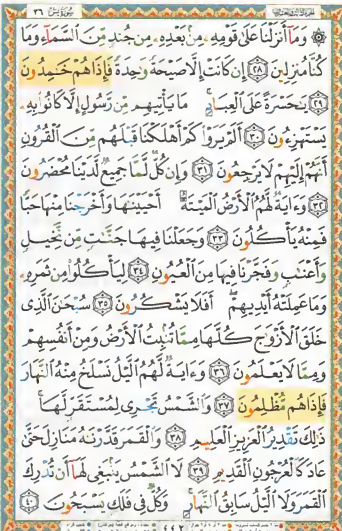 ٣٦ سورة يس
۞ وَمَآ أَنزَلْنَا عَلَىٰ قَوْمِهِۦ مِنۢ بَعْدِهِۦ مِن جُندٍ مِّنَ ٱلسَّمَآءِ وَمَا
كُنَّا مُنزِلِينَ ٢٨ إِن كَانَتْ إِلَّا صَيْحَةً وَٰحِدَةً فَإِذَا هُمْ خَٰمِدُونَ
٢٩ يَٰحَسْرَةً عَلَى ٱلْعِبَادِ مَا يَأْتِيهِم مِّن رَّسُولٍ إِلَّا كَانُوا۟ بِهِۦ
يَسْتَهْزِءُونَ ٣٠ أَلَمْ يَرَوْا۟ كَمْ أَهْلَكْنَا قَبْلَهُم مِّنَ ٱلْقُرُونِ
أَنَّهُمْ إِلَيْهِمْ لَا يَرْجِعُونَ ٣١ وَإِن كُلٌّ لَّمَّا جَمِيعٌ لَّدَيْنَا مُحْضَرُونَ
٣٢ وَءَايَةٌ لَّهُمُ ٱلْأَرْضُ ٱلْمَيْتَةُ أَحْيَيْنَٰهَا وَأَخْرَجْنَا مِنْهَا حَبًّا
فَمِنْهُ يَأْكُلُونَ ٣٣ وَجَعَلْنَا فِيهَا جَنَّٰتٍ مِّن نَّخِيلٍ
وَأَعْنَٰبٍ وَفَجَّرْنَا فِيهَا مِنَ ٱلْعُيُونِ ٣٤ لِيَأْكُلُوا۟ مِن ثَمَرِهِۦ
وَمَا عَمِلَتْهُ أَيْدِيهِمْ أَفَلَا يَشْكُرُونَ ٣٥ سُبْحَٰنَ ٱلَّذِى
خَلَقَ ٱلْأَزْوَٰجَ كُلَّهَا مِمَّا تُنۢبِتُ ٱلْأَرْضُ وَمِنْ أَنفُسِهِمْ
وَمِمَّا لَا يَعْلَمُونَ ٣٦ وَءَايَةٌ لَّهُمُ ٱلَّيْلُ نَسْلَخُ مِنْهُ ٱلنَّهَارَ
فَإِذَا هُم مُّظْلِمُونَ ٣٧ وَٱلشَّمْسُ تَجْرِى لِمُسْتَقَرٍّ لَّهَا
ذَٰلِكَ تَقْدِيرُ ٱلْعَزِيزِ ٱلْعَلِيمِ ٣٨ وَٱلْقَمَرَ قَدَّرْنَٰهُ مَنَازِلَ حَتَّىٰ
عَادَ كَٱلْعُرْجُونِ ٱلْقَدِيمِ ٣٩ لَا ٱلشَّمْسُ يَنۢبَغِى لَهَآ أَن تُدْرِكَ
ٱلْقَمَرَ وَلَا ٱلَّيْلُ سَابِقُ ٱلنَّهَارِ وَكُلٌّ فِى فَلَكٍ يَسْبَحُونَ ٤٠
٤٤٢